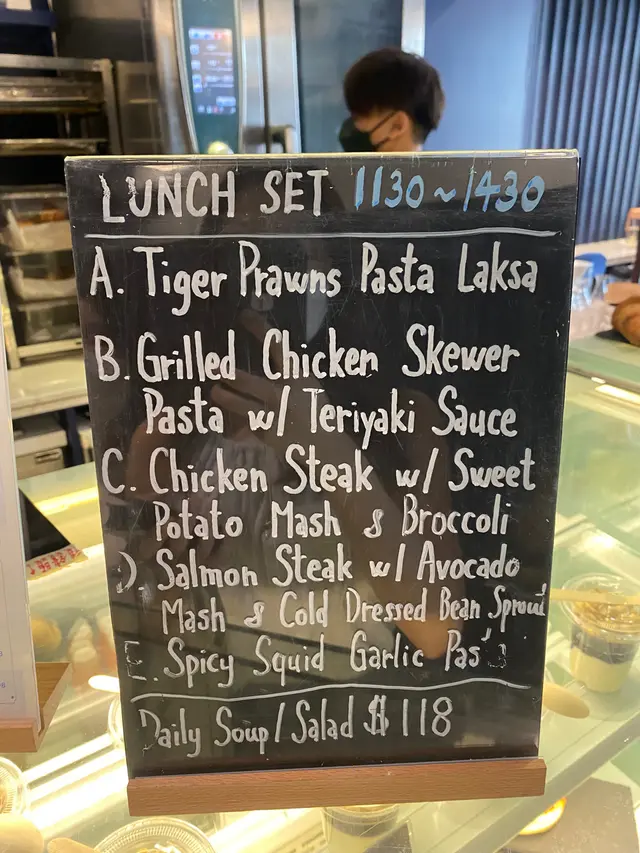 LUNCH SET 1130~1430
A. Tiger Prawns Pasta Laksa
B. Grilled Chicken Skewer
Pasta w/ Teriyaki Sauce
C. Chicken Steak w/ Sweet
Potato Mash & Broccoli
D) Salmon Steak w/ Avocado
Mash & Cold Dressed Bean Sprout
E. Spicy Squid Garlic
Daily Soup/Salad $118